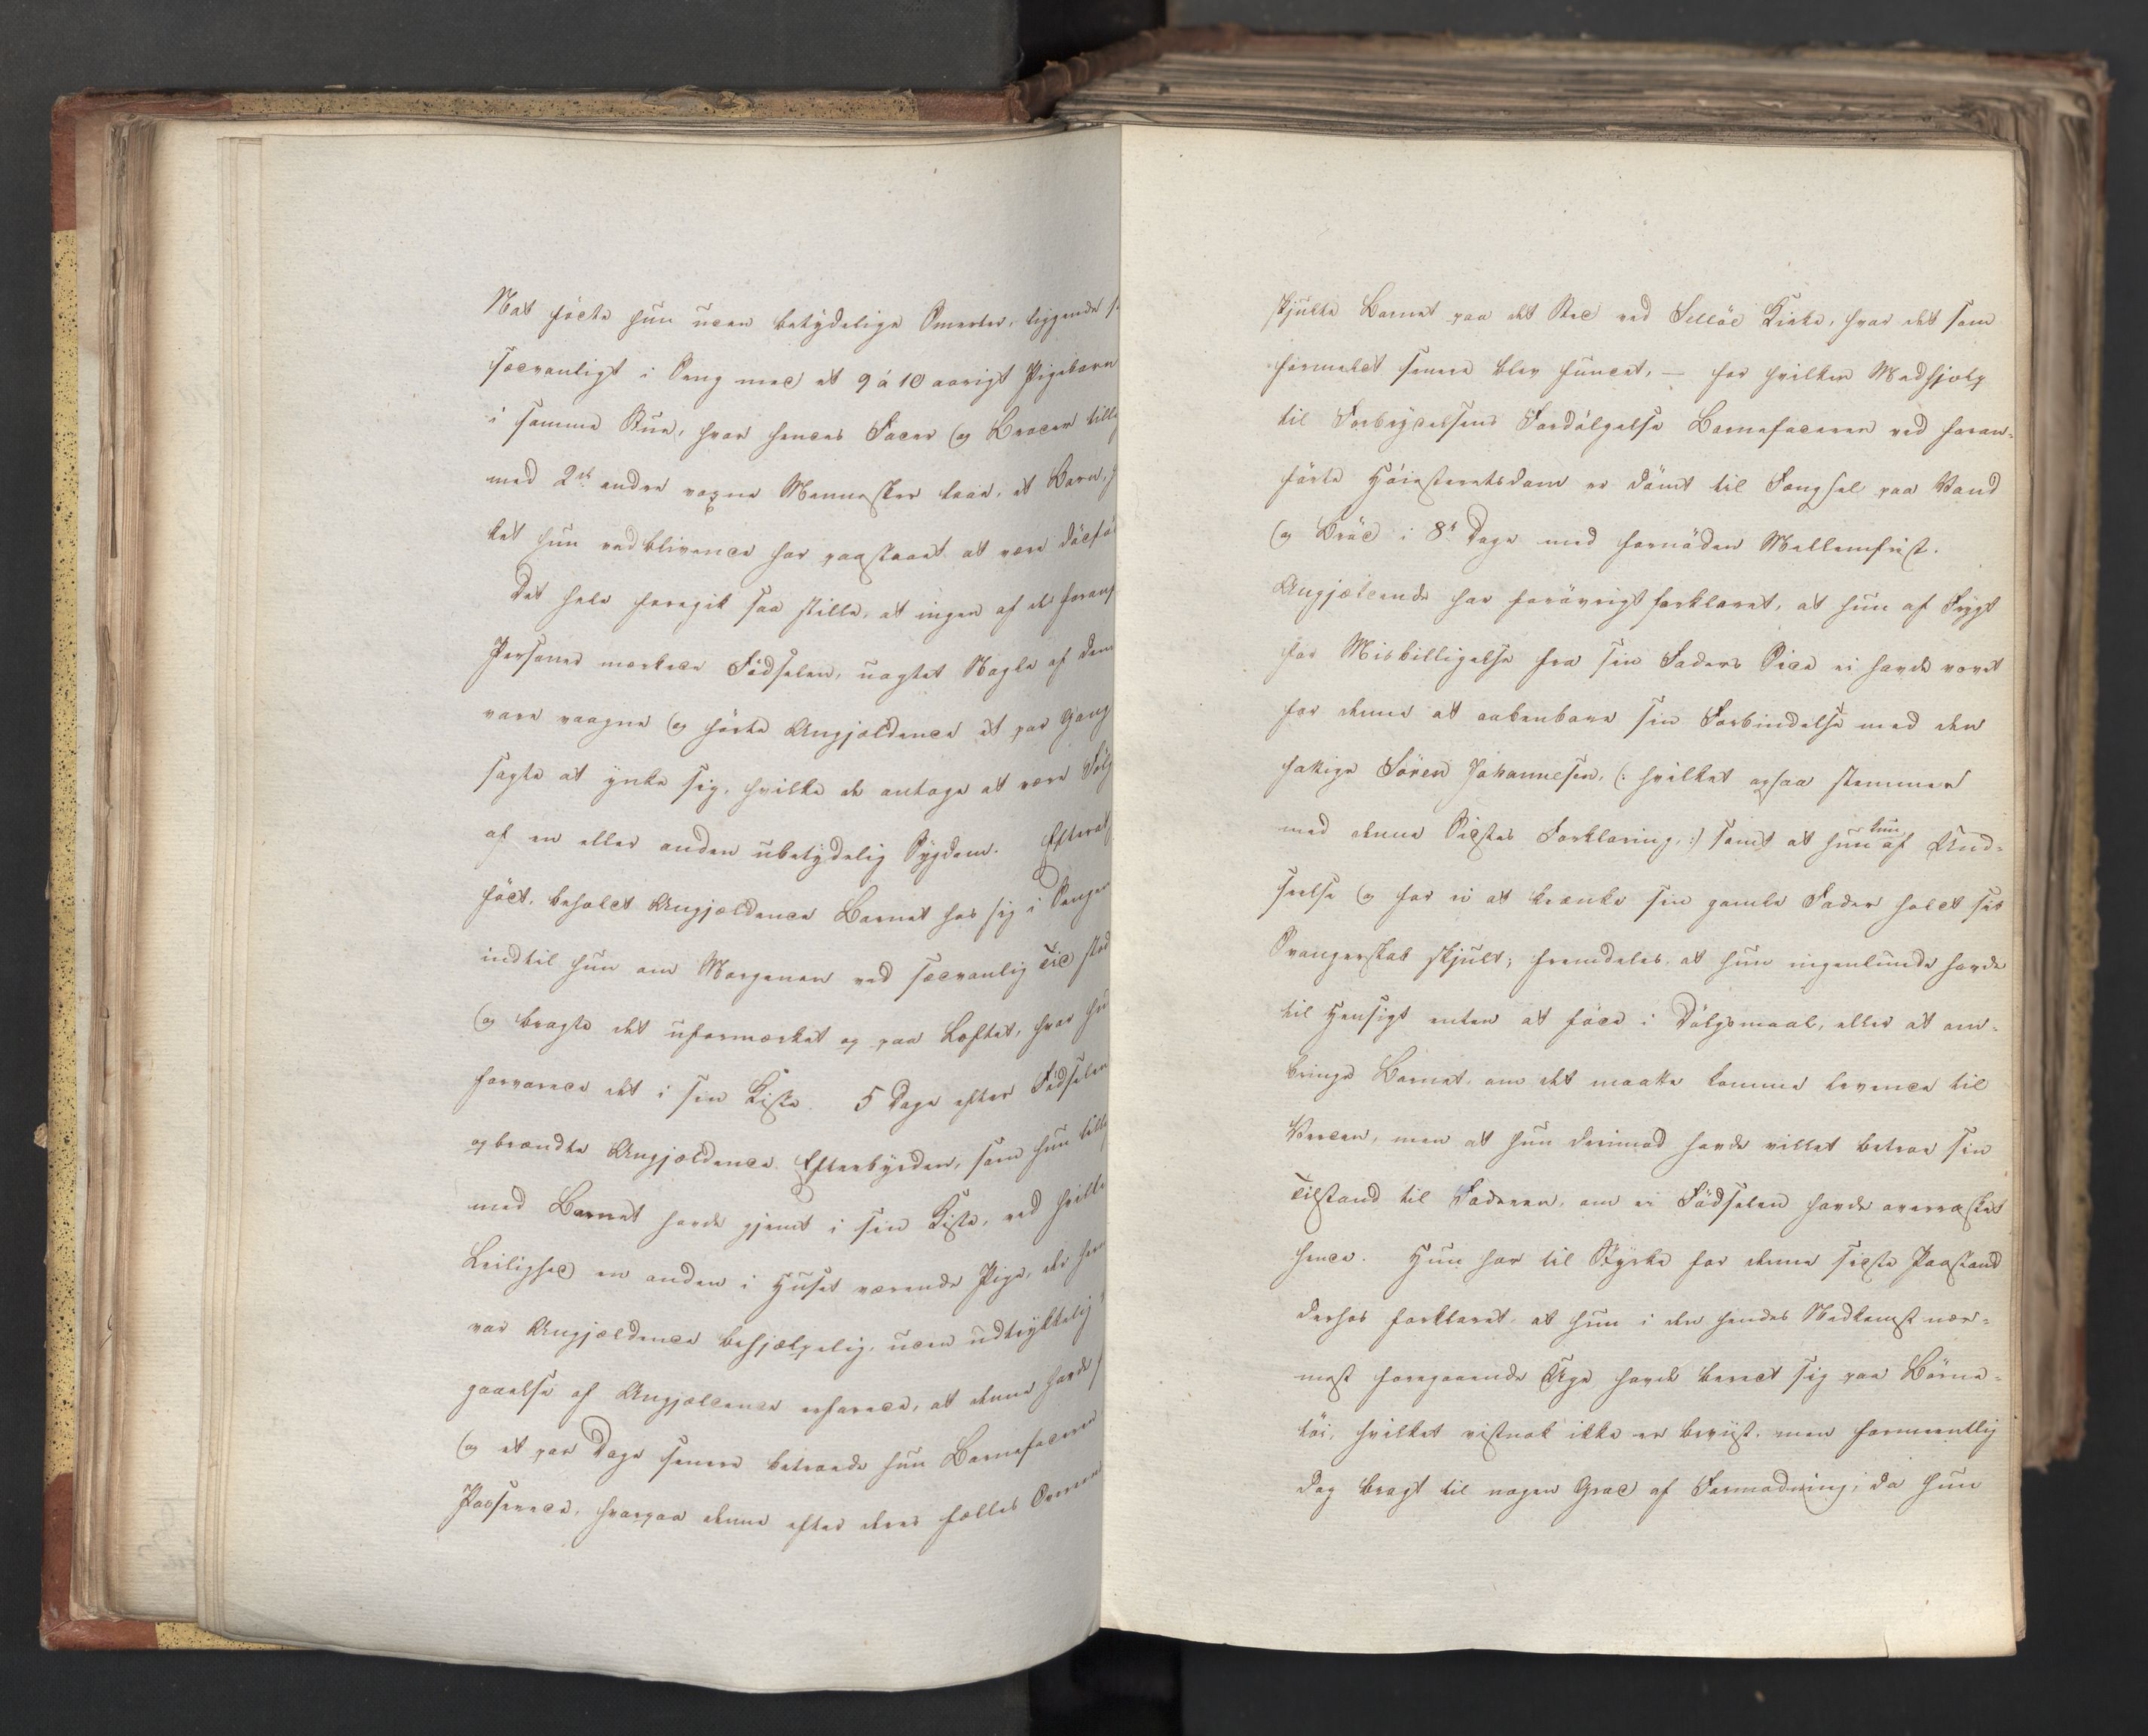 Nat födte hun uden betydelige Smerter, liggende
sædvanligt i Seng med et 9 à 10 aarigt Pigebarn
i samme Stue, hvor hendes Fader og Broder tillige
med 2de andre voxne Mennesker laae, et Barn,
ket hun vedblivende har paastaaet at være dödfö
Det hele foregik saa stille, at ingen af de foranf
Personer mærkede Födselen, uagtet Nogle af dem
vare vaagne og hörte Angjældende et par Gang
sagte at ynke sig, hvilke de antoge at være Fölg
af en eller anden ubetydelig Sygdom. Efterat
födt, beholdt Angjældende Barnet hos sig i Sengen
indtil hun om Morgenen ved sædvanlig Tid stod
og bragte det uformærket op paa Loftet, hvor hu
forvarede det i sin Kiste. 5 Dage efter Födselen
opbrændte Angjældende Efterbyrden, som hun tillig
med Barnet havde gjemt i sin Kiste, ved hvilke
Leilighed en anden i Huset værende Pige, der he
var Angjældende behjælpelig, uden udtrykkelig
gaaelse af Angjældende erfarede, at denne havde f
og et par Dage senere betroede hun Barnefaderen
Passerede, hvorpaa denne efter deres fælles Overe
skjulte Barnet paa det Sted ved Selløe Kirke, hvor det som
formeldt senere blev fundet, — for hvilken Medhjælp
til Forbrydelsens Fordölgelse Barnefaderen ved foran-
förte Höiesteretsdom er dömt til Fængsel paa Vand
og Bröd i 8te Dage med fornöden Mellemfrist.
Angjældende har forövrigt forklaret, at hun af Frygt
for Misbilligelse fra sin Faders Side ei havde vovet
for denne at aabenbare sin Forbindelse med den
fattige Sören Johannesen, (: hvilket ogsaa stemmer
med denne Sidstes Forklaring, :) samt at hun kun af Und-
seelse og for ei at krænke sin gamle Fader holdt sit
Svangerskab skjult; fremdeles at hun ingenlunde havde
til Hensigt enten at föde i Dölgsmaal, eller at om-
bringe Barnet, om det maatte komme levende til
Verden, men at hun derimod havde villet betroe sin
Tilstand til Faderen, om ei Födselen havde overrasket
hende. Hun har til Styrke for denne sidste Paastand
derhos forklaret, at hun i den hendes Nedkomst nær-
mest foregaaende Uge havde beredt sig paa Börne-
töi, hvilket vistnok ikke er beviist, men formeentlig
dog bragt til nogen Grad af Formodning, da hun